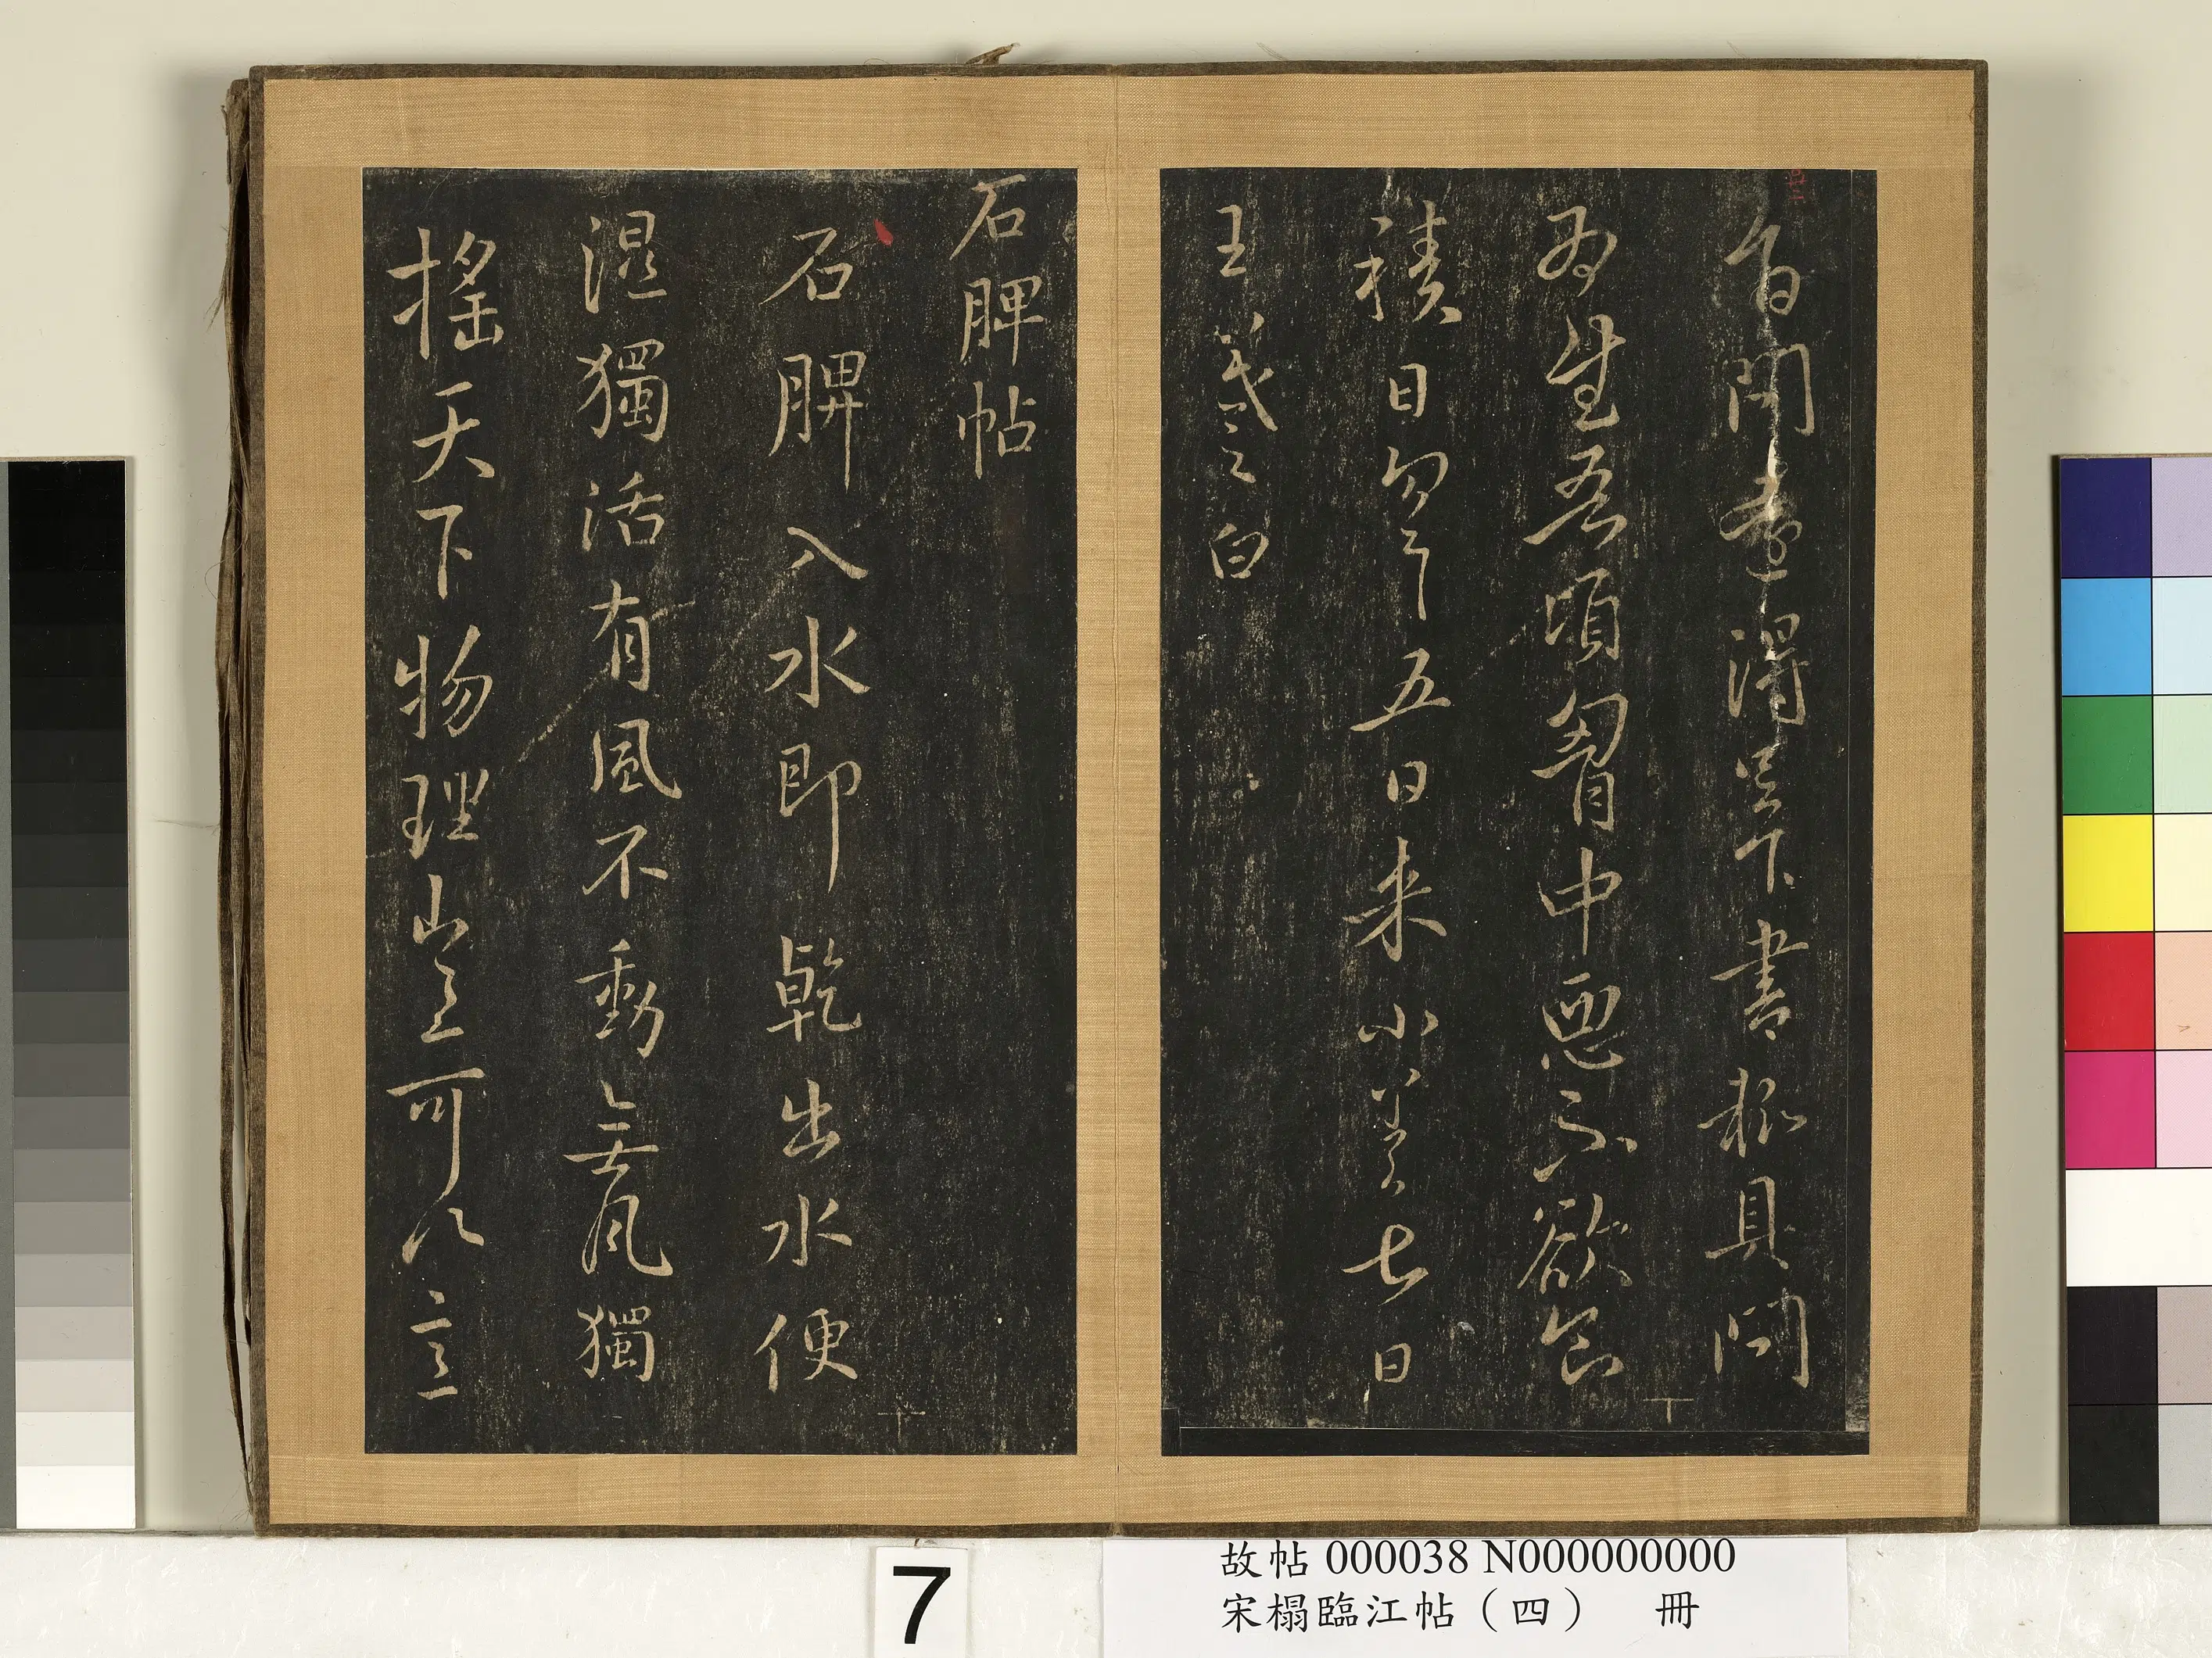 得足下書極具問
為吾頃胷中惡不欲食
積日勿勿五日来小差七日
王羲之白
石脾帖
石脾入水即乾出水便
濕獨活有風不動無風獨
搖天下物理豈可以意
7
故帖 000038 N000000000
宋榻臨江帖（四） 冊